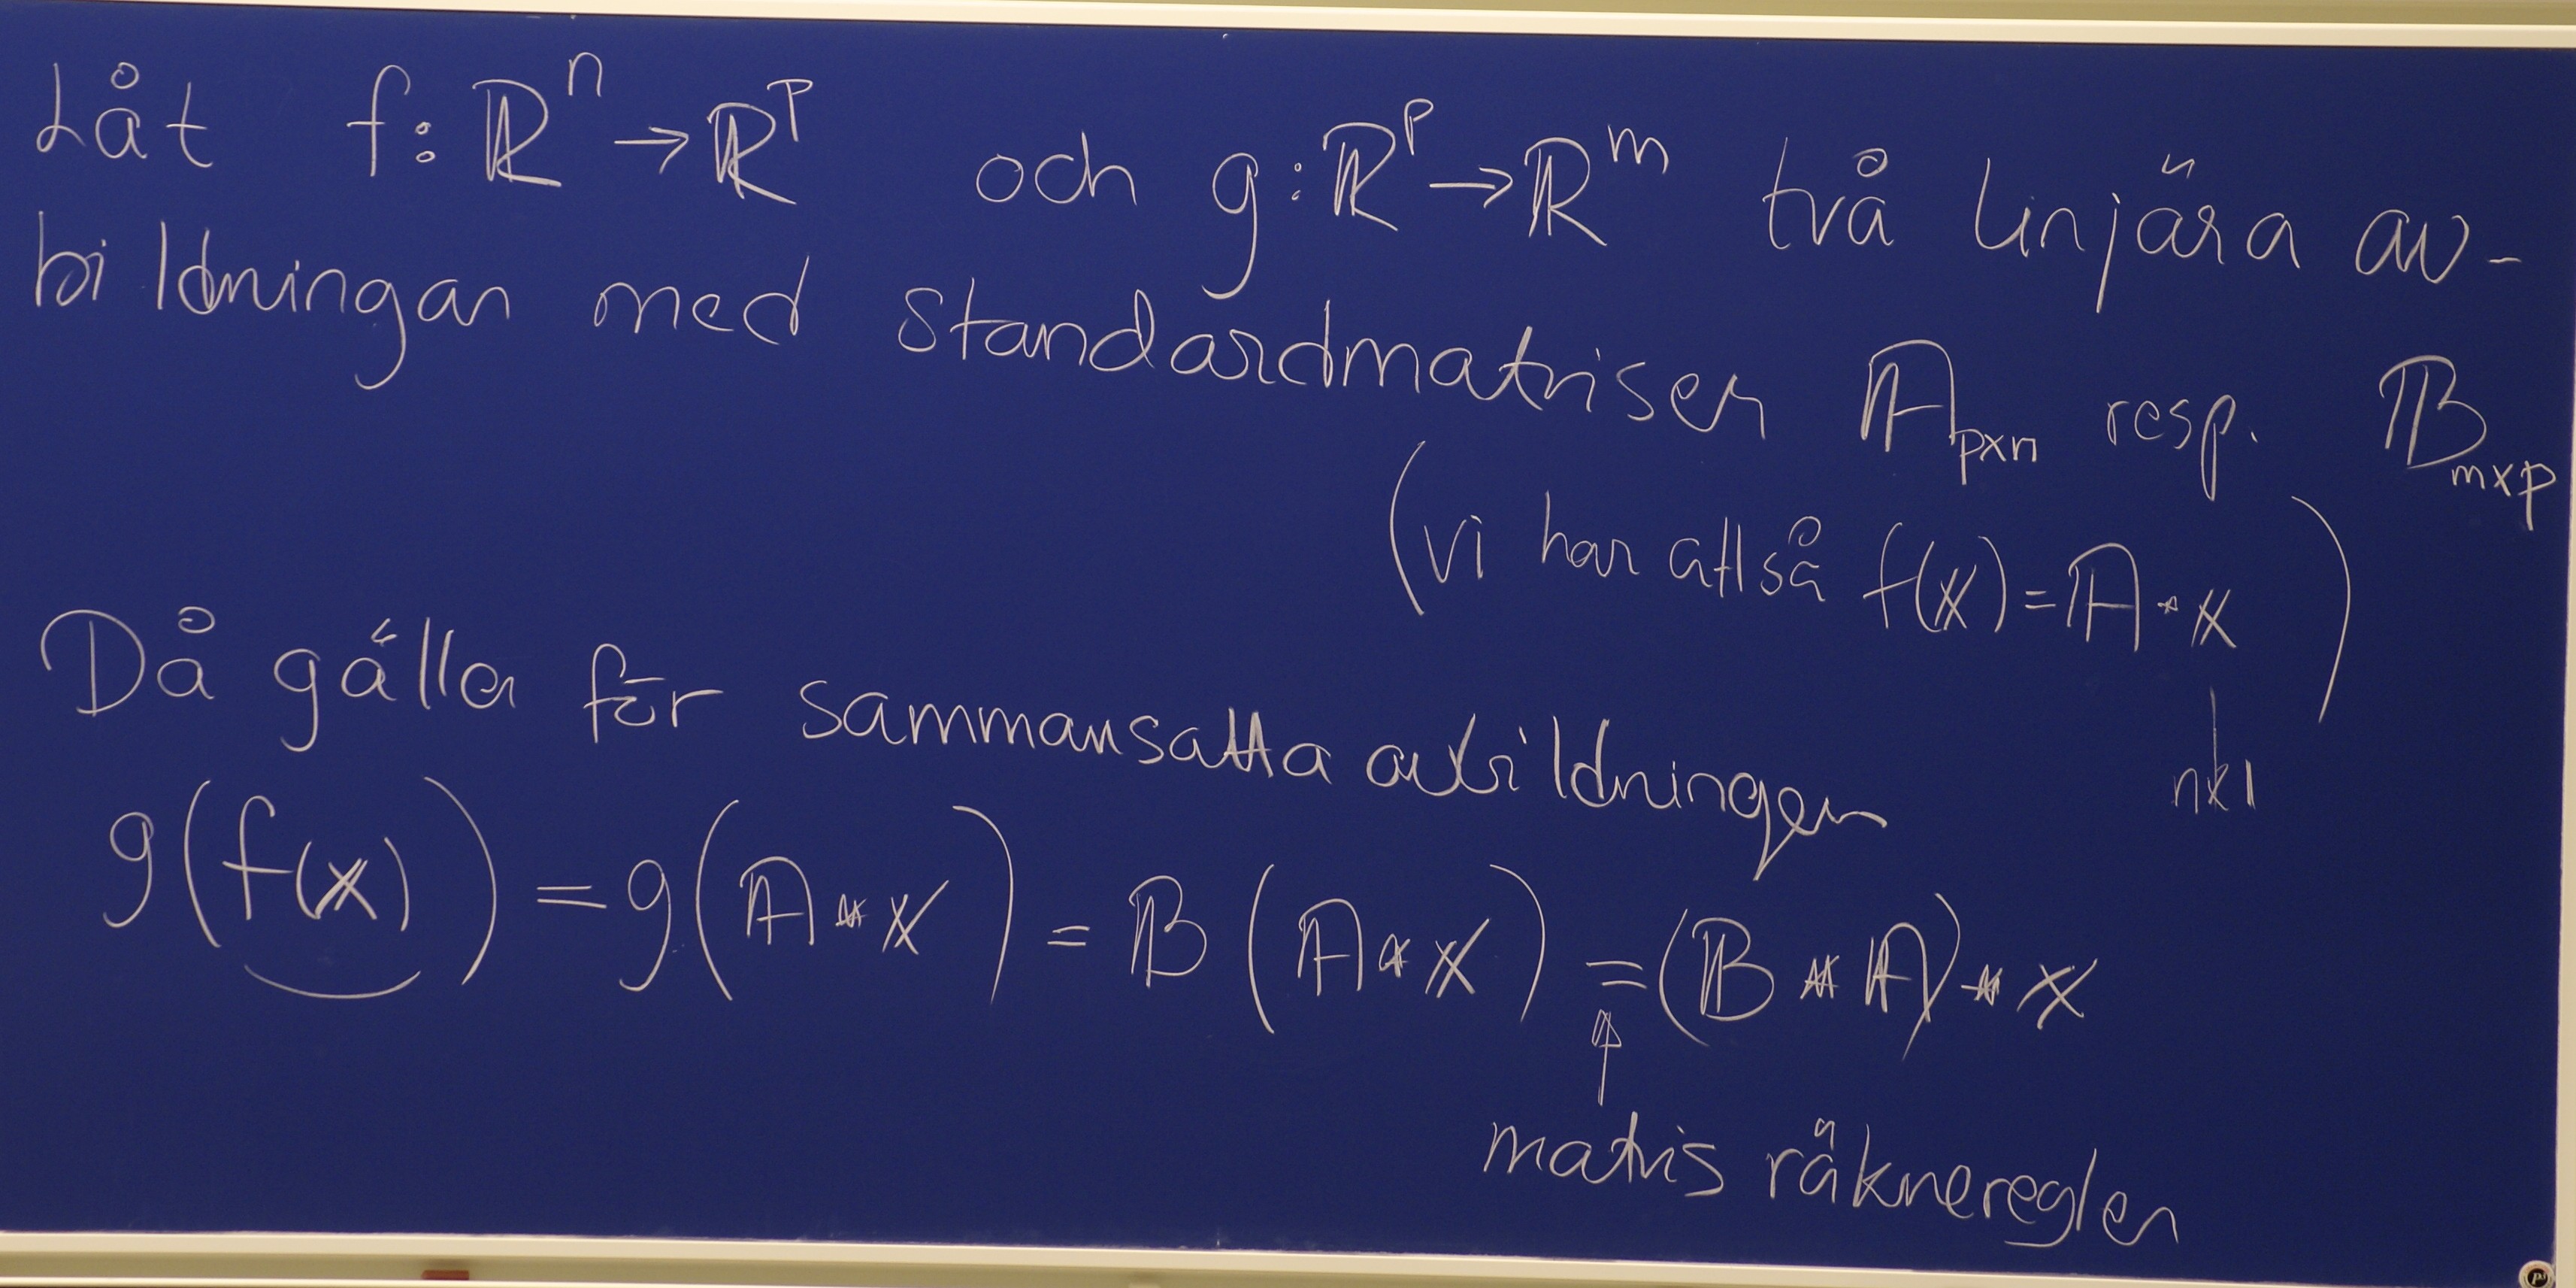 Låt f: ℝⁿ → ℝᵖ och g: ℝᵖ → ℝᵐ två linjära av-
bildningar med standardmatriser 𝔸ₚₓₙ resp. 𝔹ₘₓₚ
(vi har alltså f(𝕩) = 𝔸 · 𝕩)
n×1
Då gäller för sammansatta avbildningen
g(f(𝕩)) = g(𝔸 · 𝕩) = 𝔹(𝔸 · 𝕩) = (𝔹 · 𝔸) · 𝕩
↑
matris räkneregler